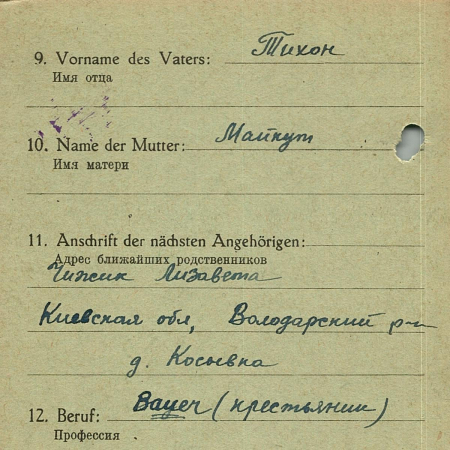 9. Vorname des Vaters: Тихон
Имя отца
10. Name der Mutter: Майкут
Имя матери
11. Anschrift der nächsten Angehörigen:
Адрес ближайших родственников
Чижик Лизавета
Киевская обл, Володарский р-н
д. Косывка
12. Beruf: Bauer (крестьянин)
Профессия